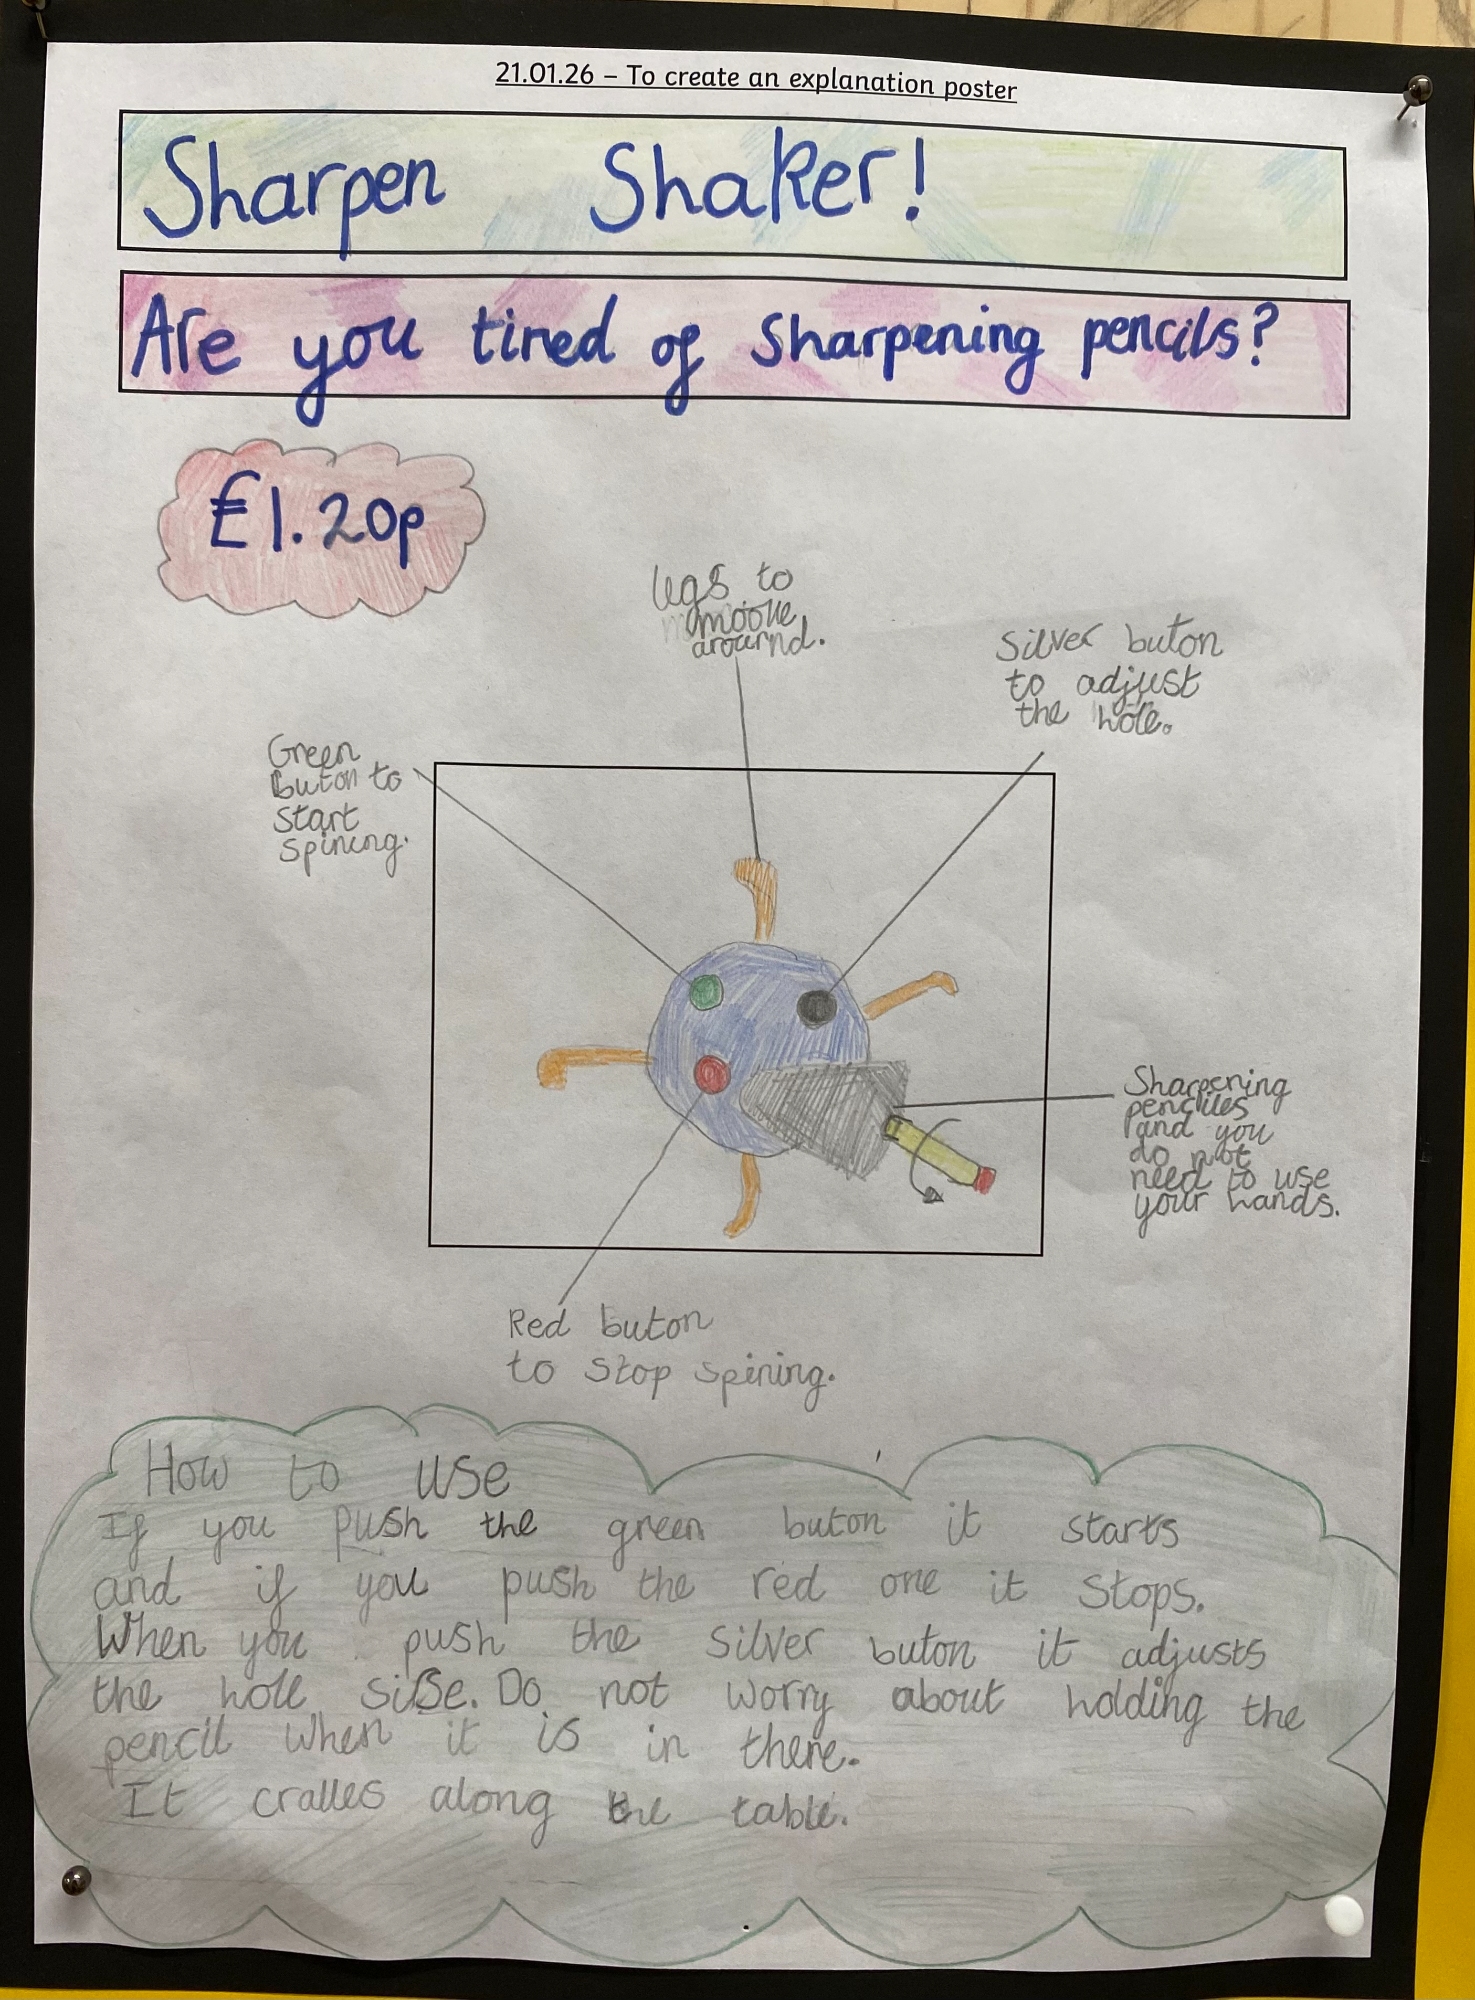 21.01.26 – To create an explanation poster
Sharpen Shaker!
Are you tired of sharpening pencils?
£1.20p
legs to
moove
arournd.
Silver buton
to adjust
the hole.
Green
buton to
start
spining.
Sharpening
penciles
and you
do not
need to use
your hands.
Red buton
to stop spining.
How to use
If you push the green buton it starts
and if you push the red one it stops.
When you push the silver buton it adjusts
the hole siBe. Do not worry about holding the
pencil when it is in there.
It cralles along the table.